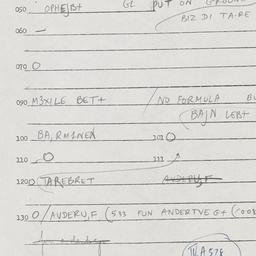 050 OPHEJB+ G1 PUT ON GROUND
BIZ DI TA.RE
060 —
070 O
090 M3XILE BET+ /NO FORMULA
BAJN LEBT
100 BA, RM1NEX 101 O
110 O 111
120 O TAREBRET AUDERU,F
130 O/AUDERU,F (533 FUN ANDERTVE G+ (008